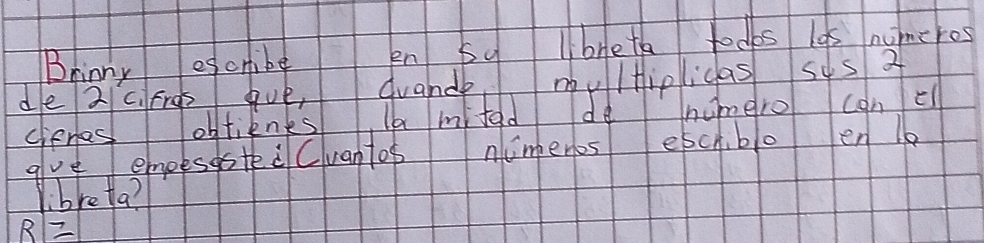 Brinny escribe en su libreta todos los números
de 2 cifras que, cuando multiplicas sus 2
cifras obtienes la mitad de número con el
que empesaste ¿Cuantos números escribio en la
libreta?
R =